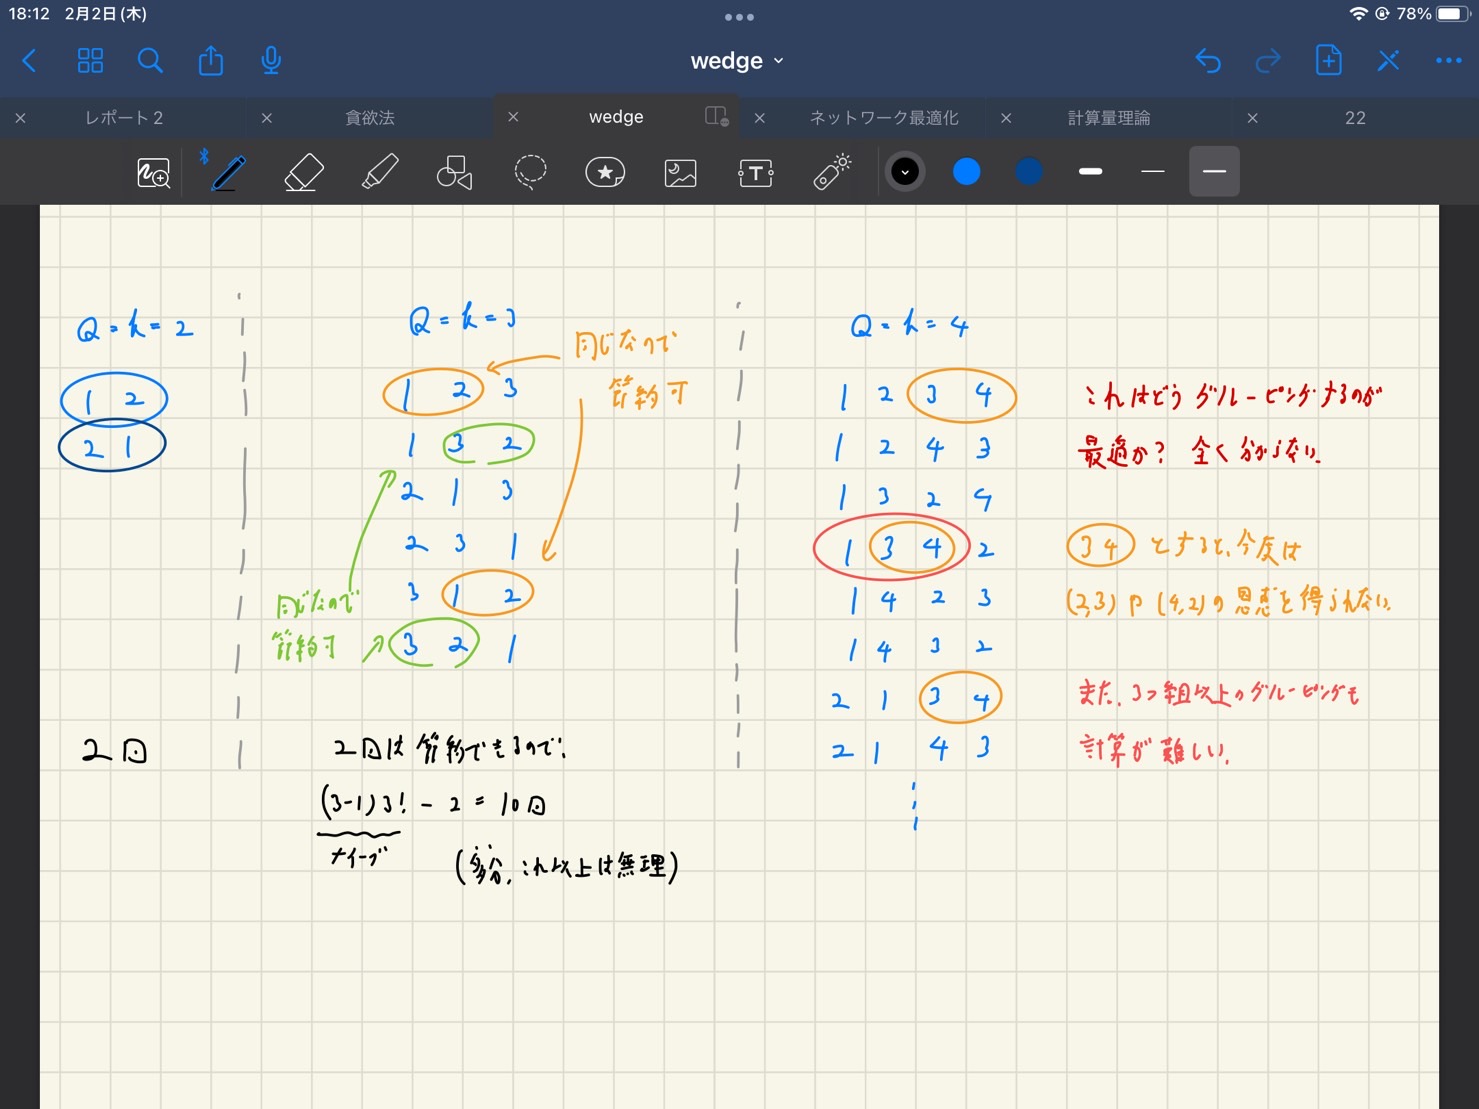 18:12 2月2日(木)
78%
wedge
レポート2
貪欲法
wedge
ネットワーク最適化
計算量理論
22
Q = k = 2
1 2
2 1
2回
Q = k = 3
同じなので
節約可
1 2 3
1 3 2
2 1 3
2 3 1
3 1 2
3 2 1
同じなので
節約可
2回は節約できるので、
(3-1)3! - 2 = 10回
ナイーブ
(多分、これ以上は無理)
Q = k = 4
1 2 3 4
1 2 4 3
1 3 2 4
1 3 4 2
1 4 2 3
1 4 3 2
2 1 3 4
2 1 4 3
これはどうグルーピングするのが
最適か? 全く分からない.
3 4 とすると、今度は
(2,3)や(4,2)の恩恵を得られない.
また、3つ組以上のグルーピングも
計算が難しい.